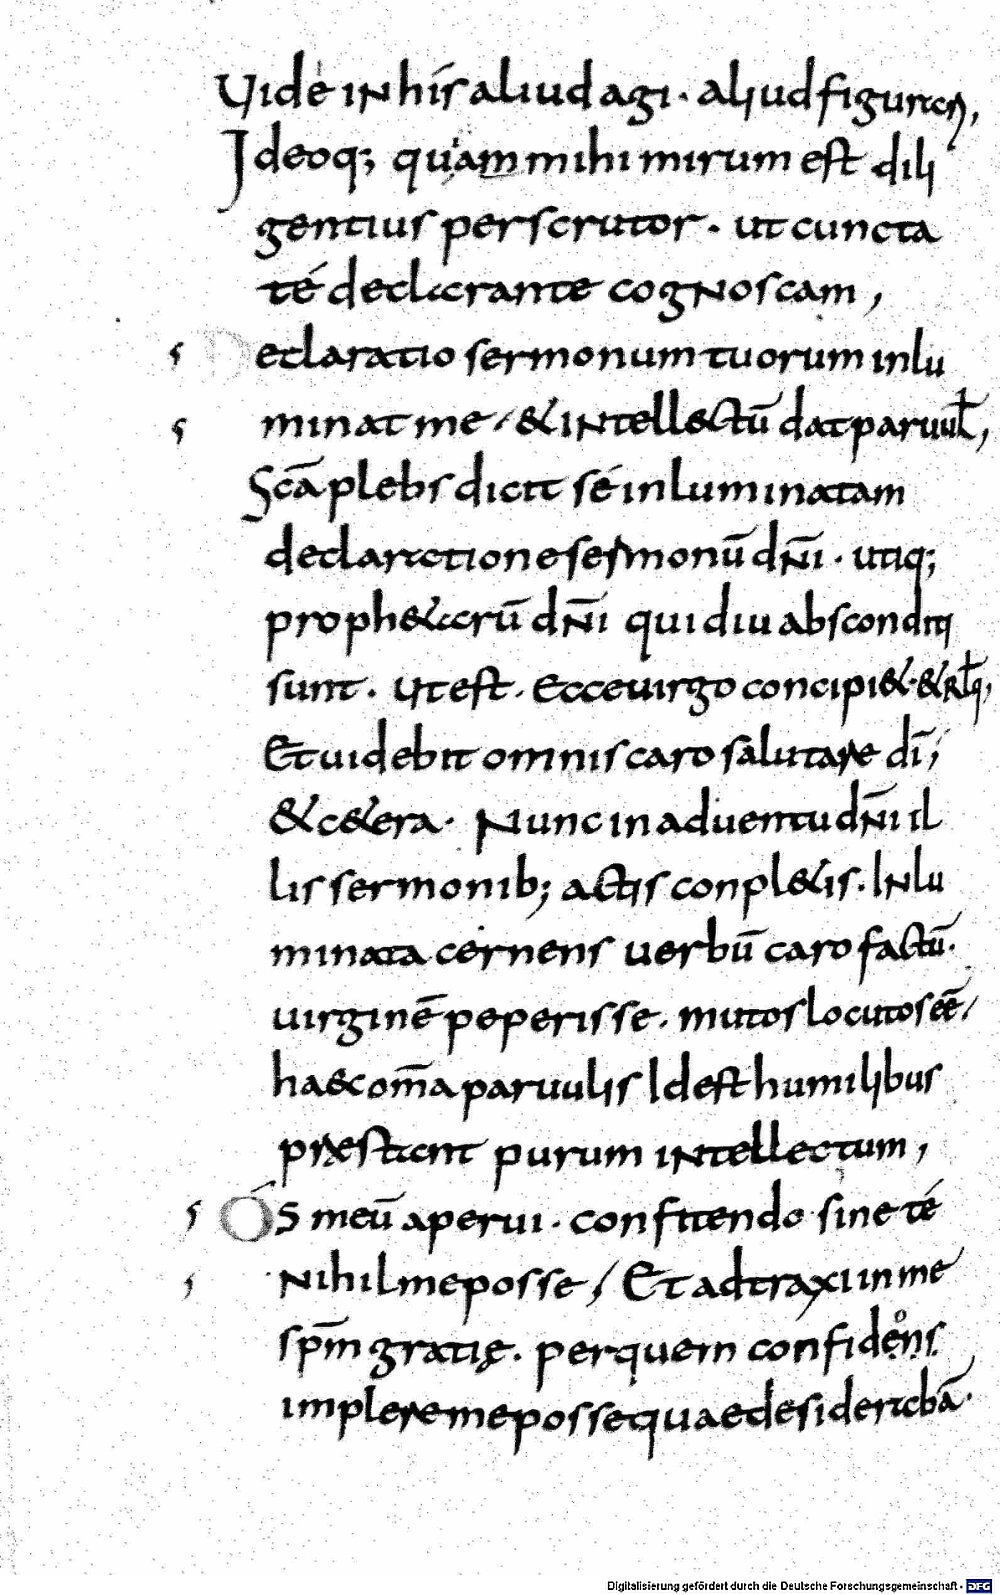 Uide in his aliud agi · aliud figurari,
Ideoq; quam mihi mirum est dili
gentius perscrutor · ut cuncta
té declarante cognoscam,
Declaratio sermonum tuorum inlu
minat me / & intellectū dat paruul̄,
Sc̄a plebs dicit sé inluminatam
declaratione sermonū dn̄i · utiq;
proph&arū dn̄i qui diu absconditi
sunt · Ut est · Ecce uirgo concipi& · & rl̄q,
Et uidebit omnis caro salutare dī;
& c&era · Nunc in aduentu dn̄i il
lis sermonib; actis conpl&is · Inlu
minata cernens uerbū caro factū ·
uirginē peperisse · mutos locutos eē /
haec om̄a paruulis Id est humilibus
praestant purum intellectum,
Ós meū aperui · confitendo sine té
nihil me posse / Et adtraxi in me
sp̄m gratię · per quem confidens
implere me posse quae desiderabā ·
Digitalisierung gefördert durch die Deutsche Forschungsgemeinschaft - DFG